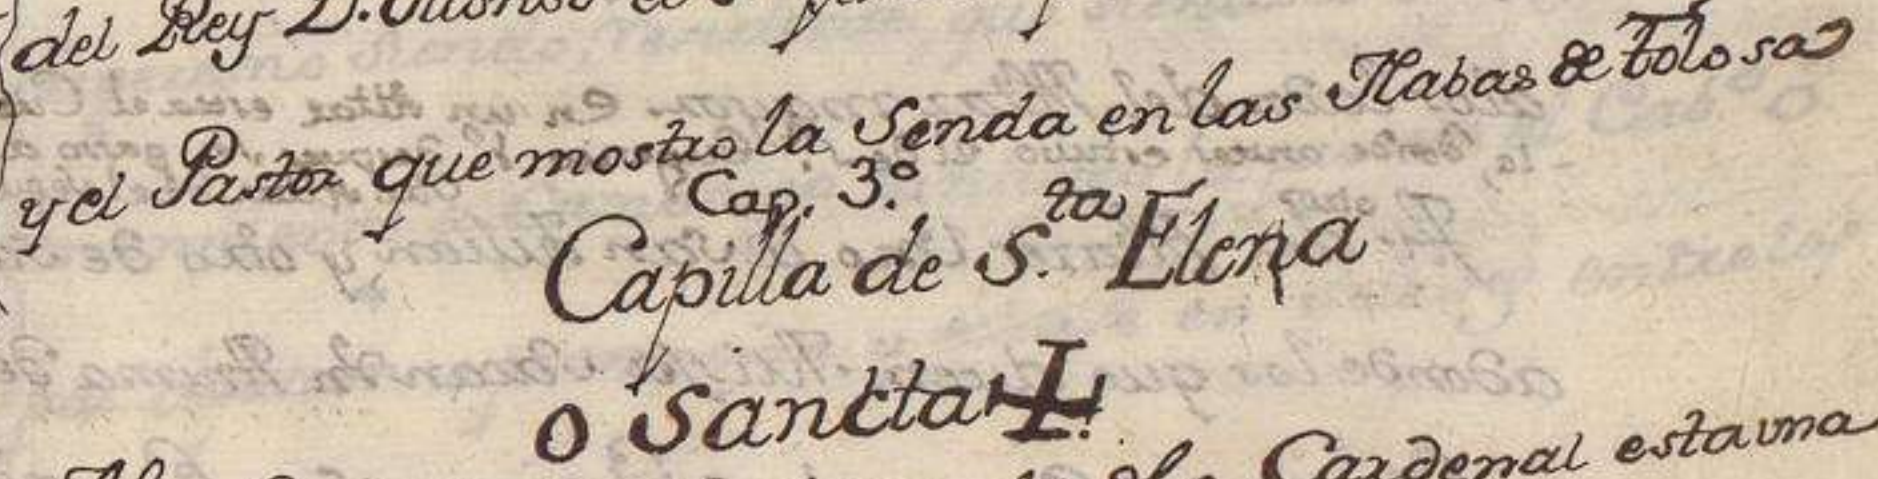 del Rey D. Alonso
y el Pastor que mostro la Senda en las Nabas de Tolosa
Cap. 3.º
Capilla de S.ta Elena
o Sancta ✝.
Cardenal esta una